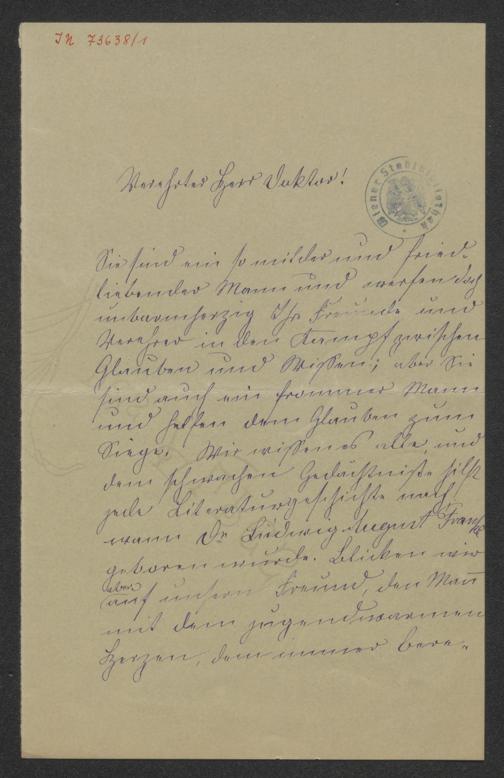 IN 73638/1
Wiener Stadtbibliothek
Verehrter Herr Doktor!
Sie sind ein so milder und fried-
liebender Mann und werfen doch
unbarmherzig Ihre Freunde und
Verehrer in den Kampf zwischen
Glauben und Wissen; aber Sie
sind auch ein frommer Mann
und helfen dem Glauben zum
Siege. Wir wissen es alle, und
dem schwachen Gedächtniße hilft
jede Literaturgeschichte nach
wann Dr Ludwig August Frankl
geboren wurde. Blicken wir
aber
auf unsern Freund, den Mann
mit dem jugendwarmen
Herzen, dem immer bere-